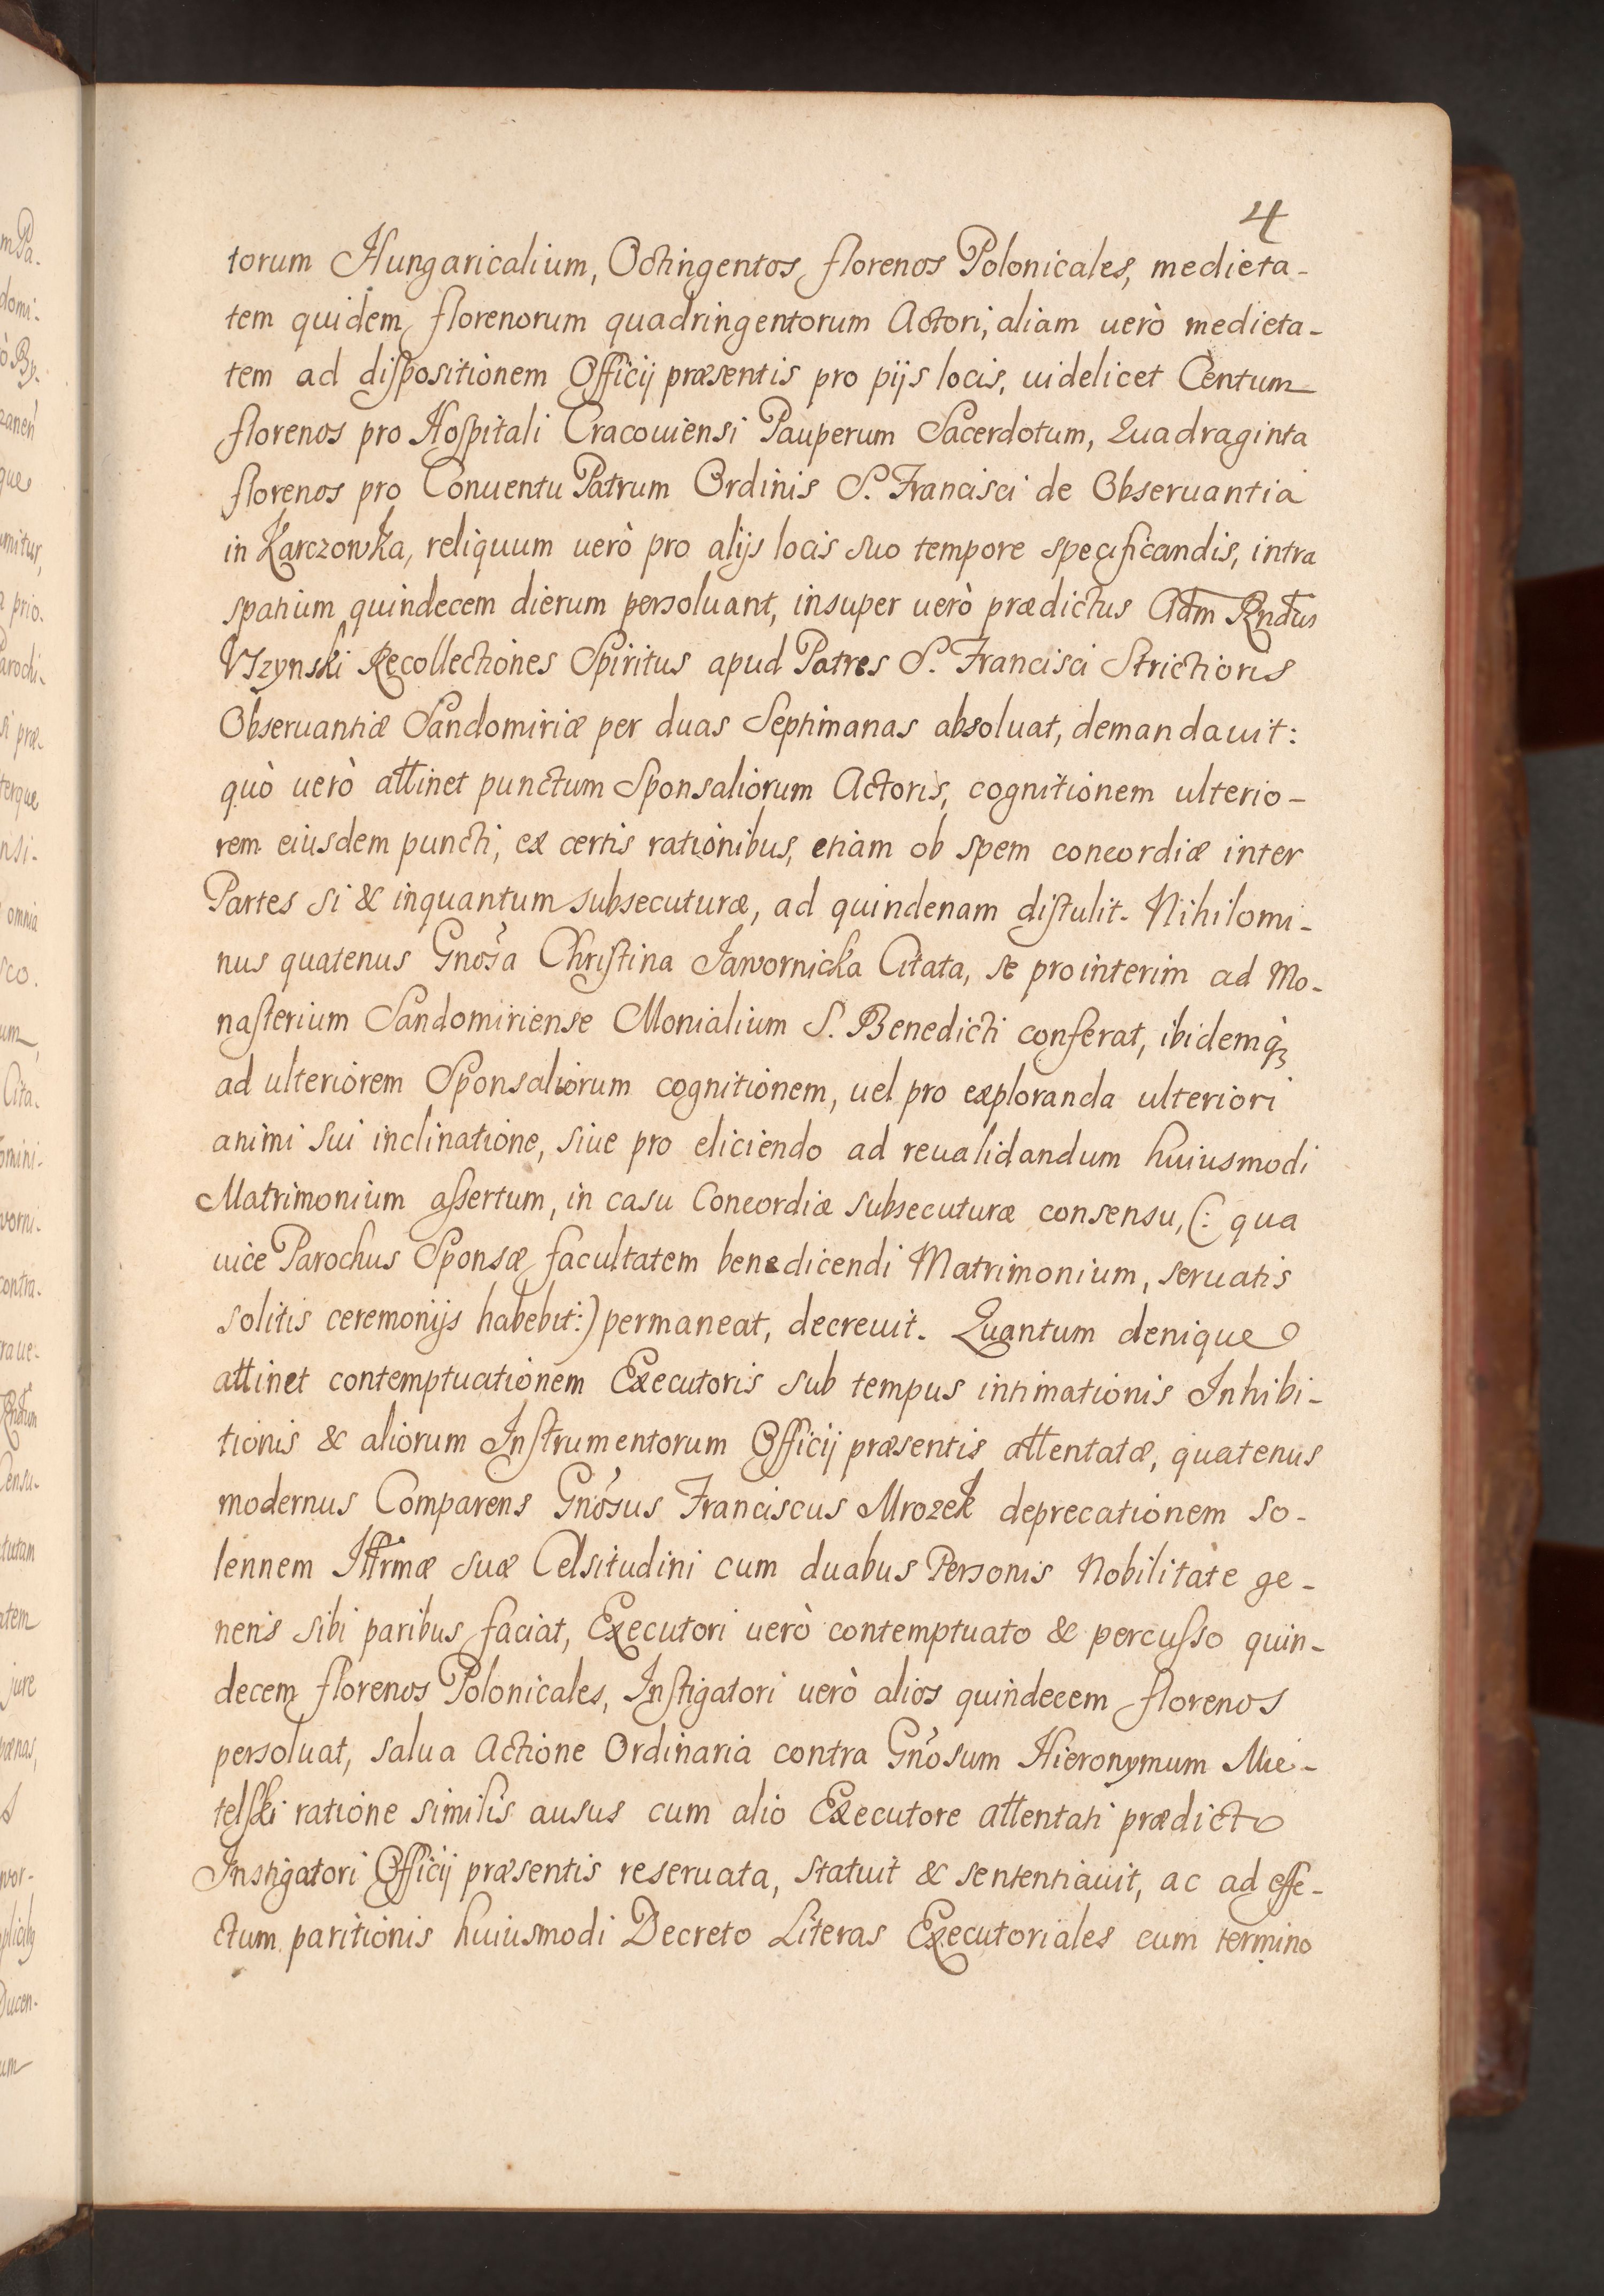 4
torum Hungaricalium, Octingentos florenos Polonicales, medieta-
tem quidem florenorum quadringentorum Actori, aliam uerò medieta-
tem ad dispositionem Officij præsentis pro pijs locis, uidelicet Centum
florenos pro Hospitali Cracouiensi Pauperum Sacerdotum, Quadraginta
florenos pro Conuentu Patrum Ordinis S. Francisci de Obseruantia
in Karczowka, reliquum uerò pro alijs locis suo tempore specificandis, intra
spatium quindecem dierum persoluant, insuper uerò prædictus Adm Rndus
Vszynski Recollectiones Spiritus apud Patres S. Francisci Strictioris
Obseruantiæ Sandomiriæ per duas Septimanas absoluat, demandauit:
quò uerò attinet punctum Sponsaliorum Actoris, cognitionem ulterio-
rem eiusdem puncti, ex certis rationibus, etiam ob spem concordiæ inter
Partes si & inquantum subsecuturæ, ad quindenam distulit. Nihilomi-
nus quatenus Gnosa Christina Jawornicka Citata, se prointerim ad Mo-
nasterium Sandomiriense Monialium S. Benedicti conferat, ibidemq̀3
ad ulteriorem Sponsaliorum cognitionem, uel pro exploranda ulteriori
animi sui inclinatione, siue pro eliciendo ad reualidandum huiusmodi
Matrimonium assertum, in casu Concordiæ subsecuturæ consensu, (: qua
uice Parochus Sponsæ facultatem benedicendi Matrimonium, seruatis
solitis ceremonijs habebit:) permaneat, decreuit. Quantum denique
attinet contemptuationem Executoris sub tempus intimationis Inhibi-
tionis & aliorum Instrumentorum Officij præsentis attentatæ, quatenus
modernus Comparens Gnosus Franciscus Mrozek deprecationem so-
lennem Illrmæ suæ Celsitudini cum duabus Personis Nobilitate ge-
neris sibi paribus faciat, Executori uerò contemptuato & percusso quin-
decem florenos Polonicales, Instigatori uerò alios quindecem florenos
persoluat, salua Actione Ordinaria contra Gnosum Hieronymum Mie-
telski ratione similis ausus cum alio Executore attentati prædicto
Instigatori Officij præsentis reseruata, statuit & sententiauit, ac ad effe-
ctum paritionis huiusmodi Decreto Literas Executoriales cum termino